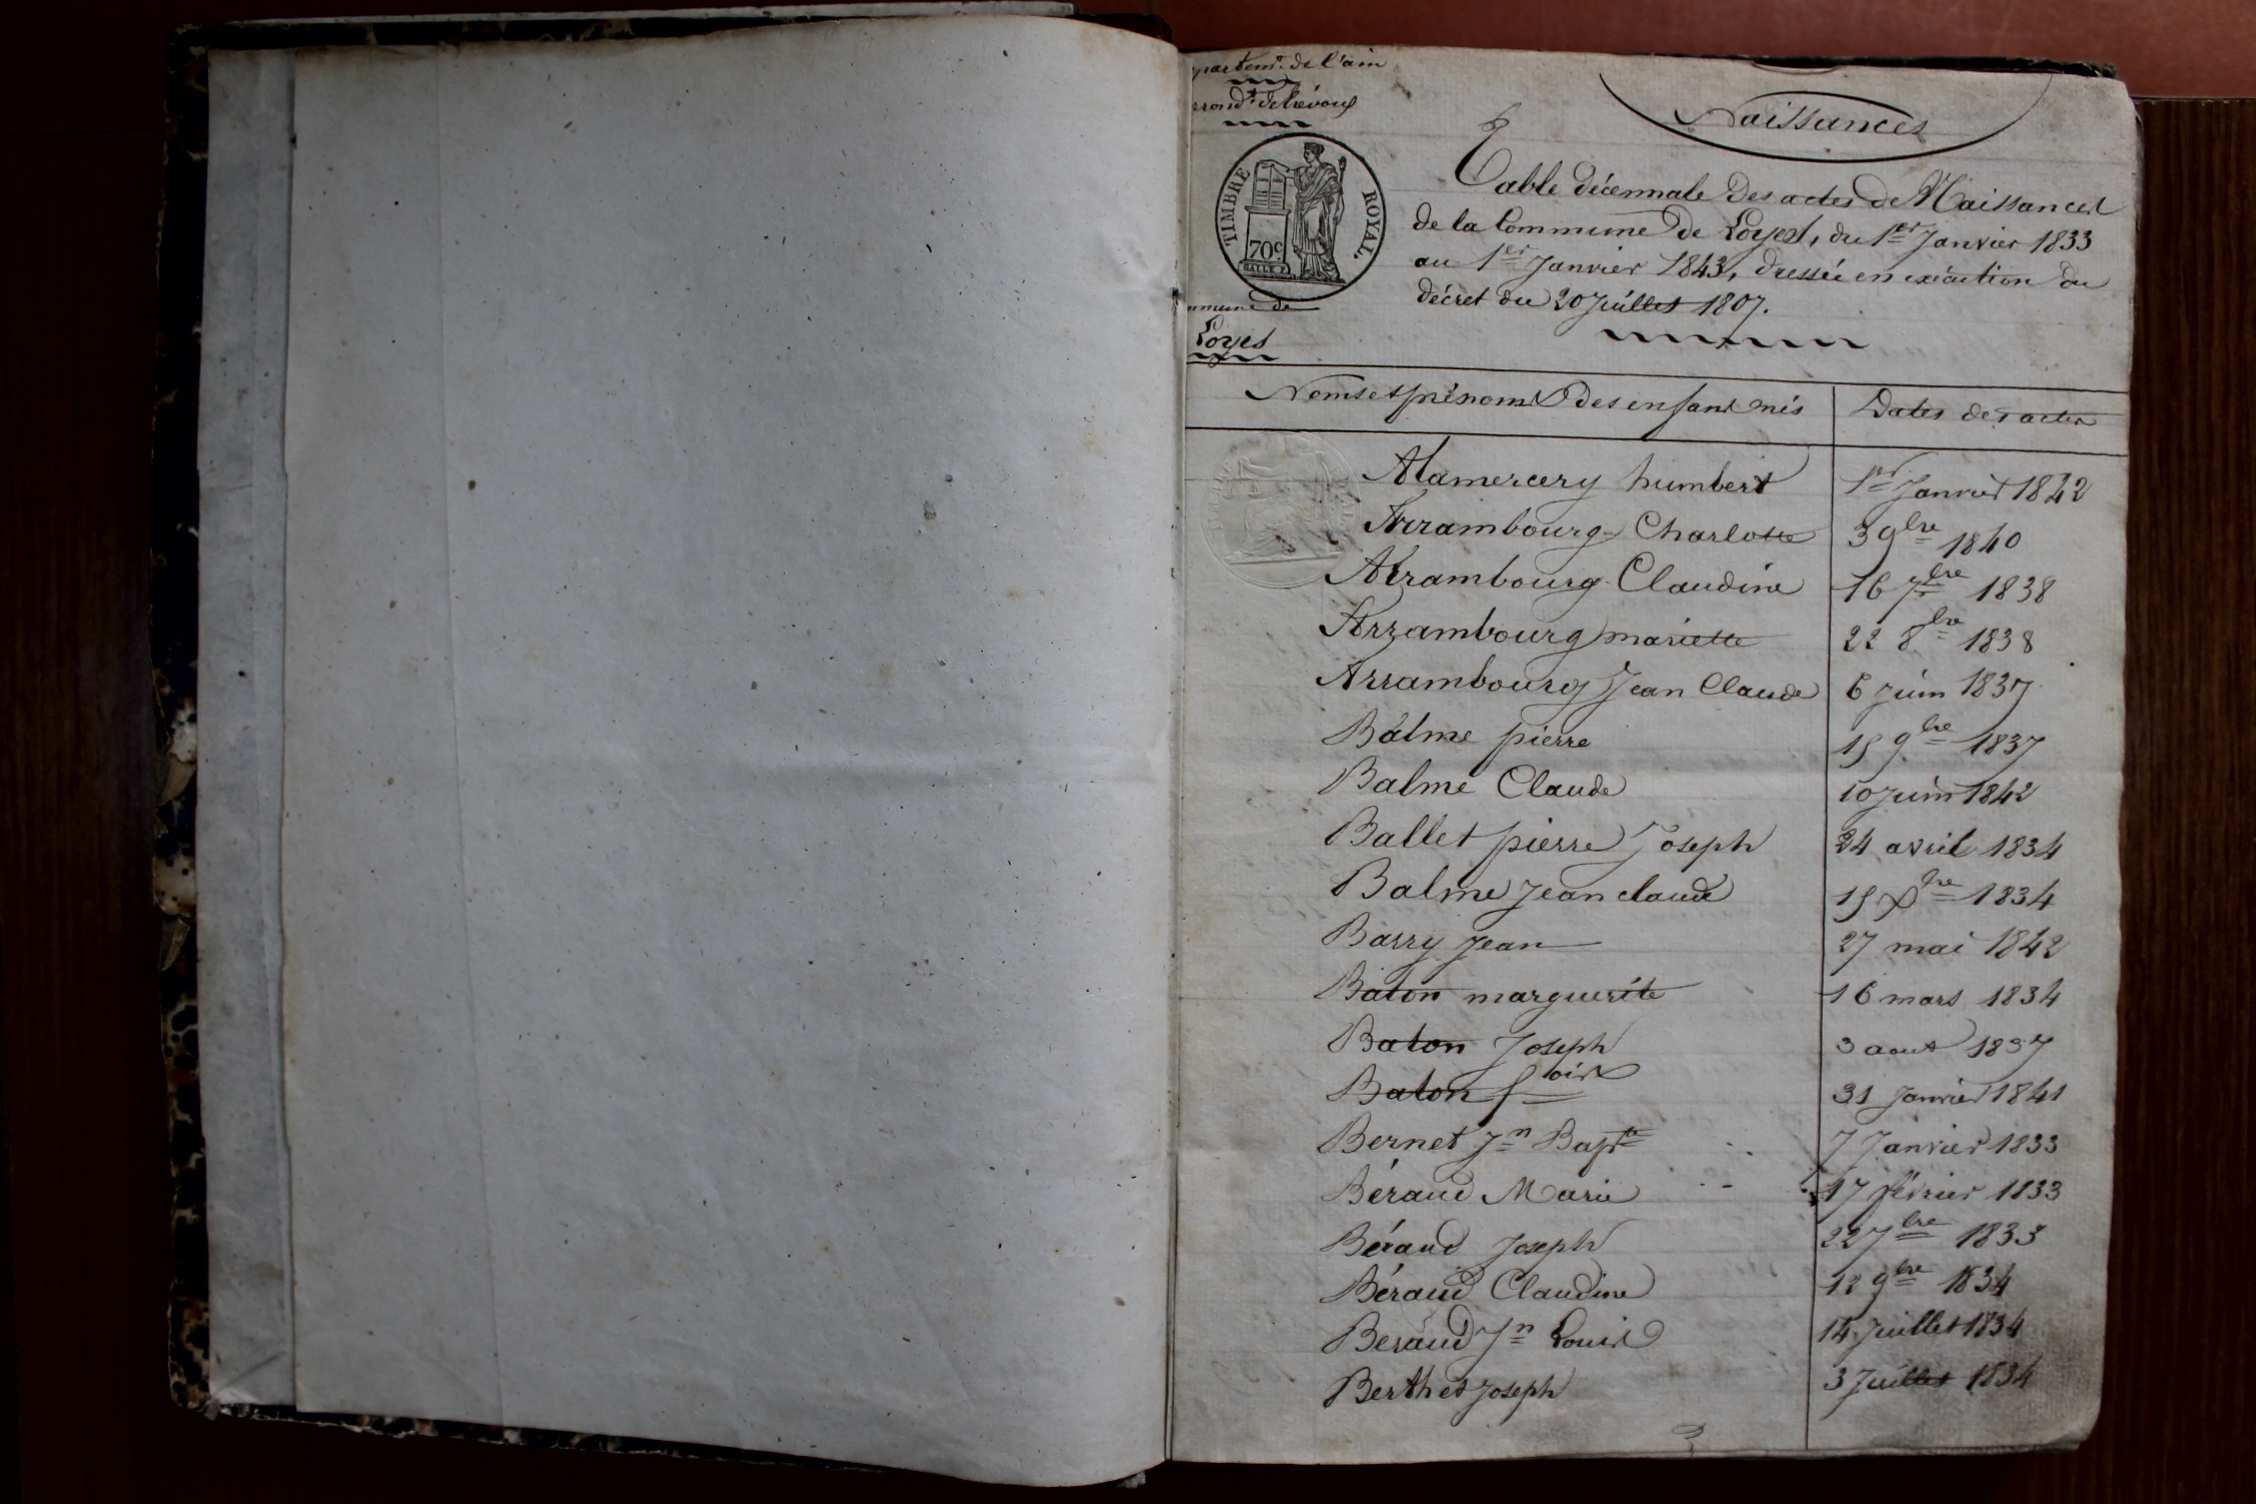 partemt. de l'ain
rrondt. de trévoux
TIMBRE ROYAL.
70c
mmune de
Loyes
Naissances
Table décennale des actes de Naissances
de la Commune de Loyes, du 1er Janvier 1833
au 1er Janvier 1843, dressée en exécution du
décret du 20 Juillet 1807.
Noms et prénoms des enfans nés | Dates des actes
Alamercery humbert 1er Janvier 1842
Arrambourg Charlotte 3 9bre 1840
Arrambourg Claudine 16 7bre 1838
Arrambourg mariette 22 8bre 1838
Arrambourg Jean Claude 6 juin 1837
Balme pierre 15 9bre 1837
Balme Claude 10 juin 1842
Ballet pierre Joseph 24 avril 1834
Balme jean claude 15 Xbre 1834
Barry jean 27 mai 1842
Baton marguerite 16 mars 1834
Baton Joseph 3 aout 1837
Baton foix 31 Janvier 1841
Bernet Jn Bapte 7 Janvier 1833
Béraud Marie 17 février 1833
Béraud Joseph 22 7bre 1833
Béraud Claudine 12 9bre 1834
Beraud Jn Louis 14 Juillet 1834
Berthet Joseph 3 Juillet 1834